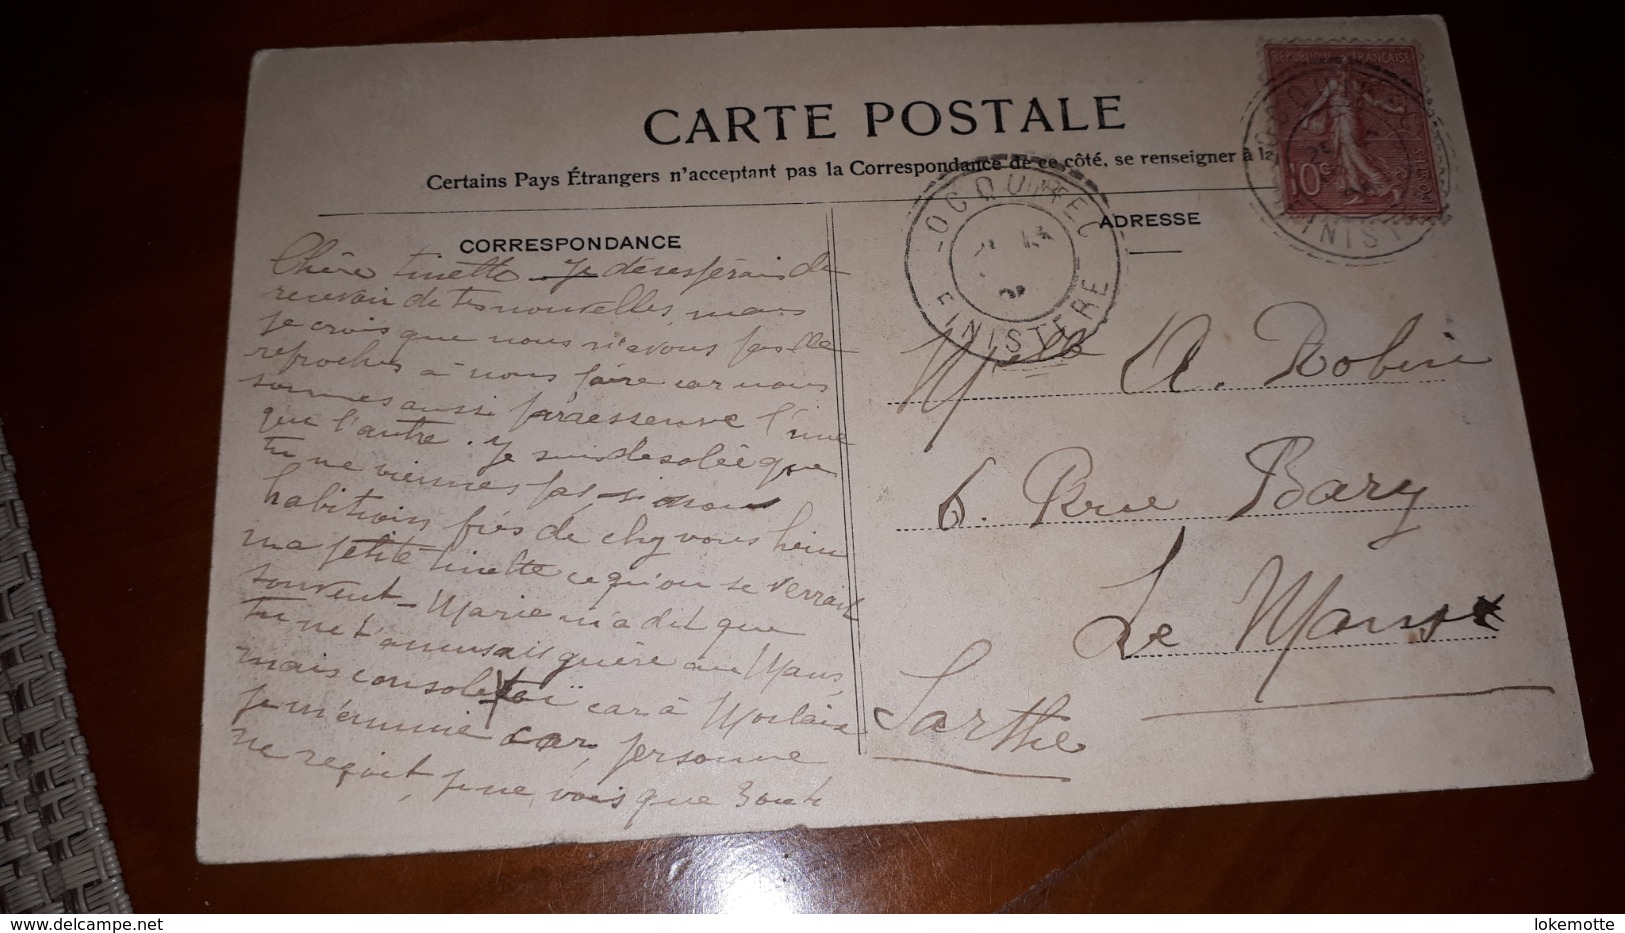 CARTE POSTALE
Certains Pays Étrangers n'acceptant pas la Correspondance de ce côté, se renseigner à la
CORRESPONDANCE
ADRESSE
RÉPUBLIQUE FRANÇAISE
10c
POSTES
LOCQUIREC
FINISTERE
LOCQUIREC
FINISTERE
Chère Tinette Je désespérais de
recevoir de tes nouvelles, mais
je crois que nous n'avons pas de
reproches à nous faire car nous
sommes aussi paresseuse l'une
que l'autre. Je suis desolée que
tu ne viennes pas, si nous
habitions près de chez vous hein
ma petite Tinette ce qu'on se verrait
souvent - Marie m'a dit que
tu ne t'amusais guère au Mans
mais console toi car à Morlaix
je m'ennuie car, personne
ne reçoit, je ne vois que
Melle A. Robin
6. Rue Bary
Le Mans
Sarthe
www.delcampe.net
lokemotte